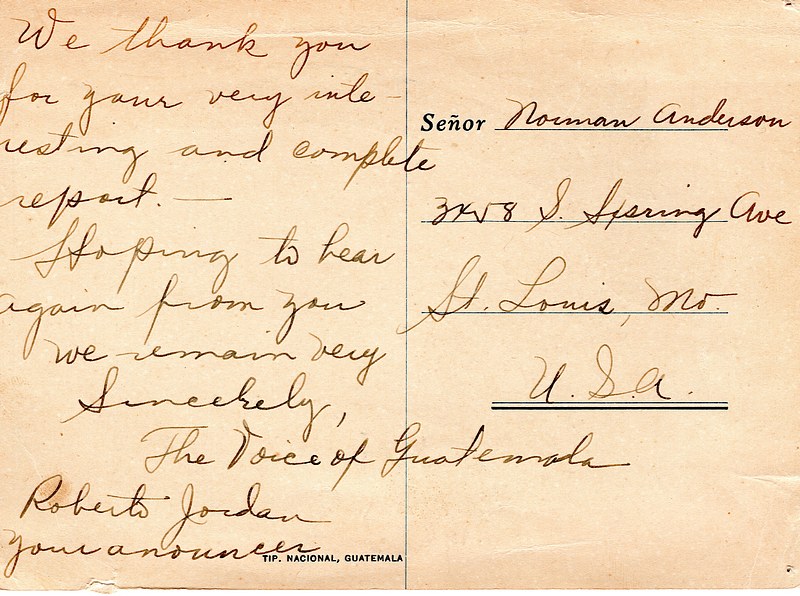 We thank you
for your very inte-
resting and complete
report. —
Hoping to hear
again from you
we remain very
Sincerely,
The Voice of Guatemala
Roberto Jordan
your anouncer
TIP. NACIONAL, GUATEMALA
Señor Norman Anderson
3458 S. Spring Ave
St. Louis, Mo.
U.S.A.